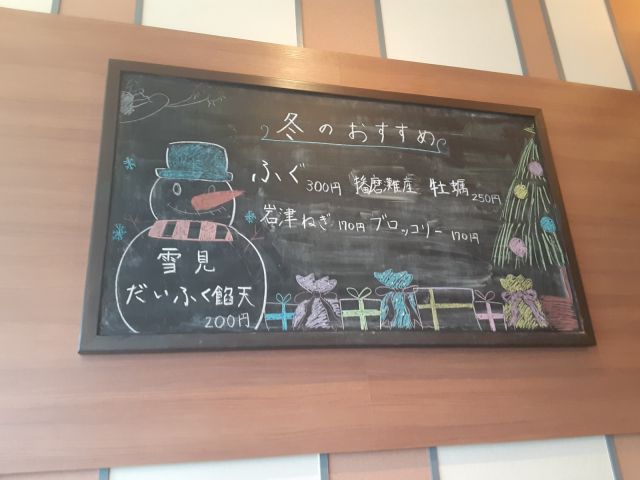 冬のおすすめ
ふぐ 300円 播磨灘産 牡蠣 250円
岩津ねぎ 170円 ブロッコリー 170円
雪見
だいふく餡天
200円